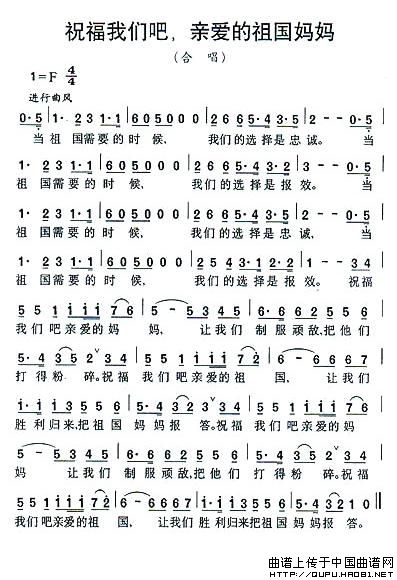 祝福我们吧，亲爱的祖国妈妈
（合 唱）
1=F 4/4
进行曲风
0·5 | 1· 2 3 1·1 | 6 0 5 0 0 0 | 2 6 6 5·4 3·2 | 1·0 0·5 |
当 祖 国需要的 时 候， 我们的选择是忠诚。 当
1· 2 3 1·1 | 6 0 5 0 0 0 | 2 6 6 5·3·2 | 3 - - 0·5 |
祖 国需要的 时 候， 我们的选择是报效。 当
1· 2 3 1·1 | 6 0 5 0 0 0 | 2 6 6 5·4 3·2 | 1 - - 0·5 |
祖 国需要的 时 候， 我们的选择是忠诚， 当
1· 2 3 1·1 | 6 0 5 0 0 0 | 2 6 6 5·4 3·2 | 1 - - 3 4 |
祖 国需要的 时 候， 我们的选择是报效。 祝福
5 5 1 1 1 1 7 6 | 5 - 5 5 1 | 2·3 2 2 1 7 6 |
我们吧亲爱的妈 妈， 让我们 制服顽敌,把他们
5·4 3 2 3 4 | 5 5 1 1 1 1 7 2 | 6 - 6 6 7 |
打得粉 碎。祝福 我们吧亲爱的祖 国， 让我们
1·1 1 3 5 5 5 | 5·4 3 2 3 4 | 5 5 1 1 1 1 7 6 |
胜利归来,把祖国 妈妈报 答。祝福 我们吧亲爱的妈
5 - 5 5 1 | 2·3 2 2 1 7 6 | 5·4 3 2 3 4 |
妈 让我们 制服顽敌,把他们 打得粉 碎。祝福
5 5 1 1 1 1 7 2 | 6 - 6 6 7 | 1·1 1 3 5 5 5 | 6·5 4 3 2 1 |
我们吧亲爱的祖 国， 让我们 胜利归来把祖国 妈妈报 答。
曲谱上传于中国曲谱网
HTTP://QUPU.HAO81.NET